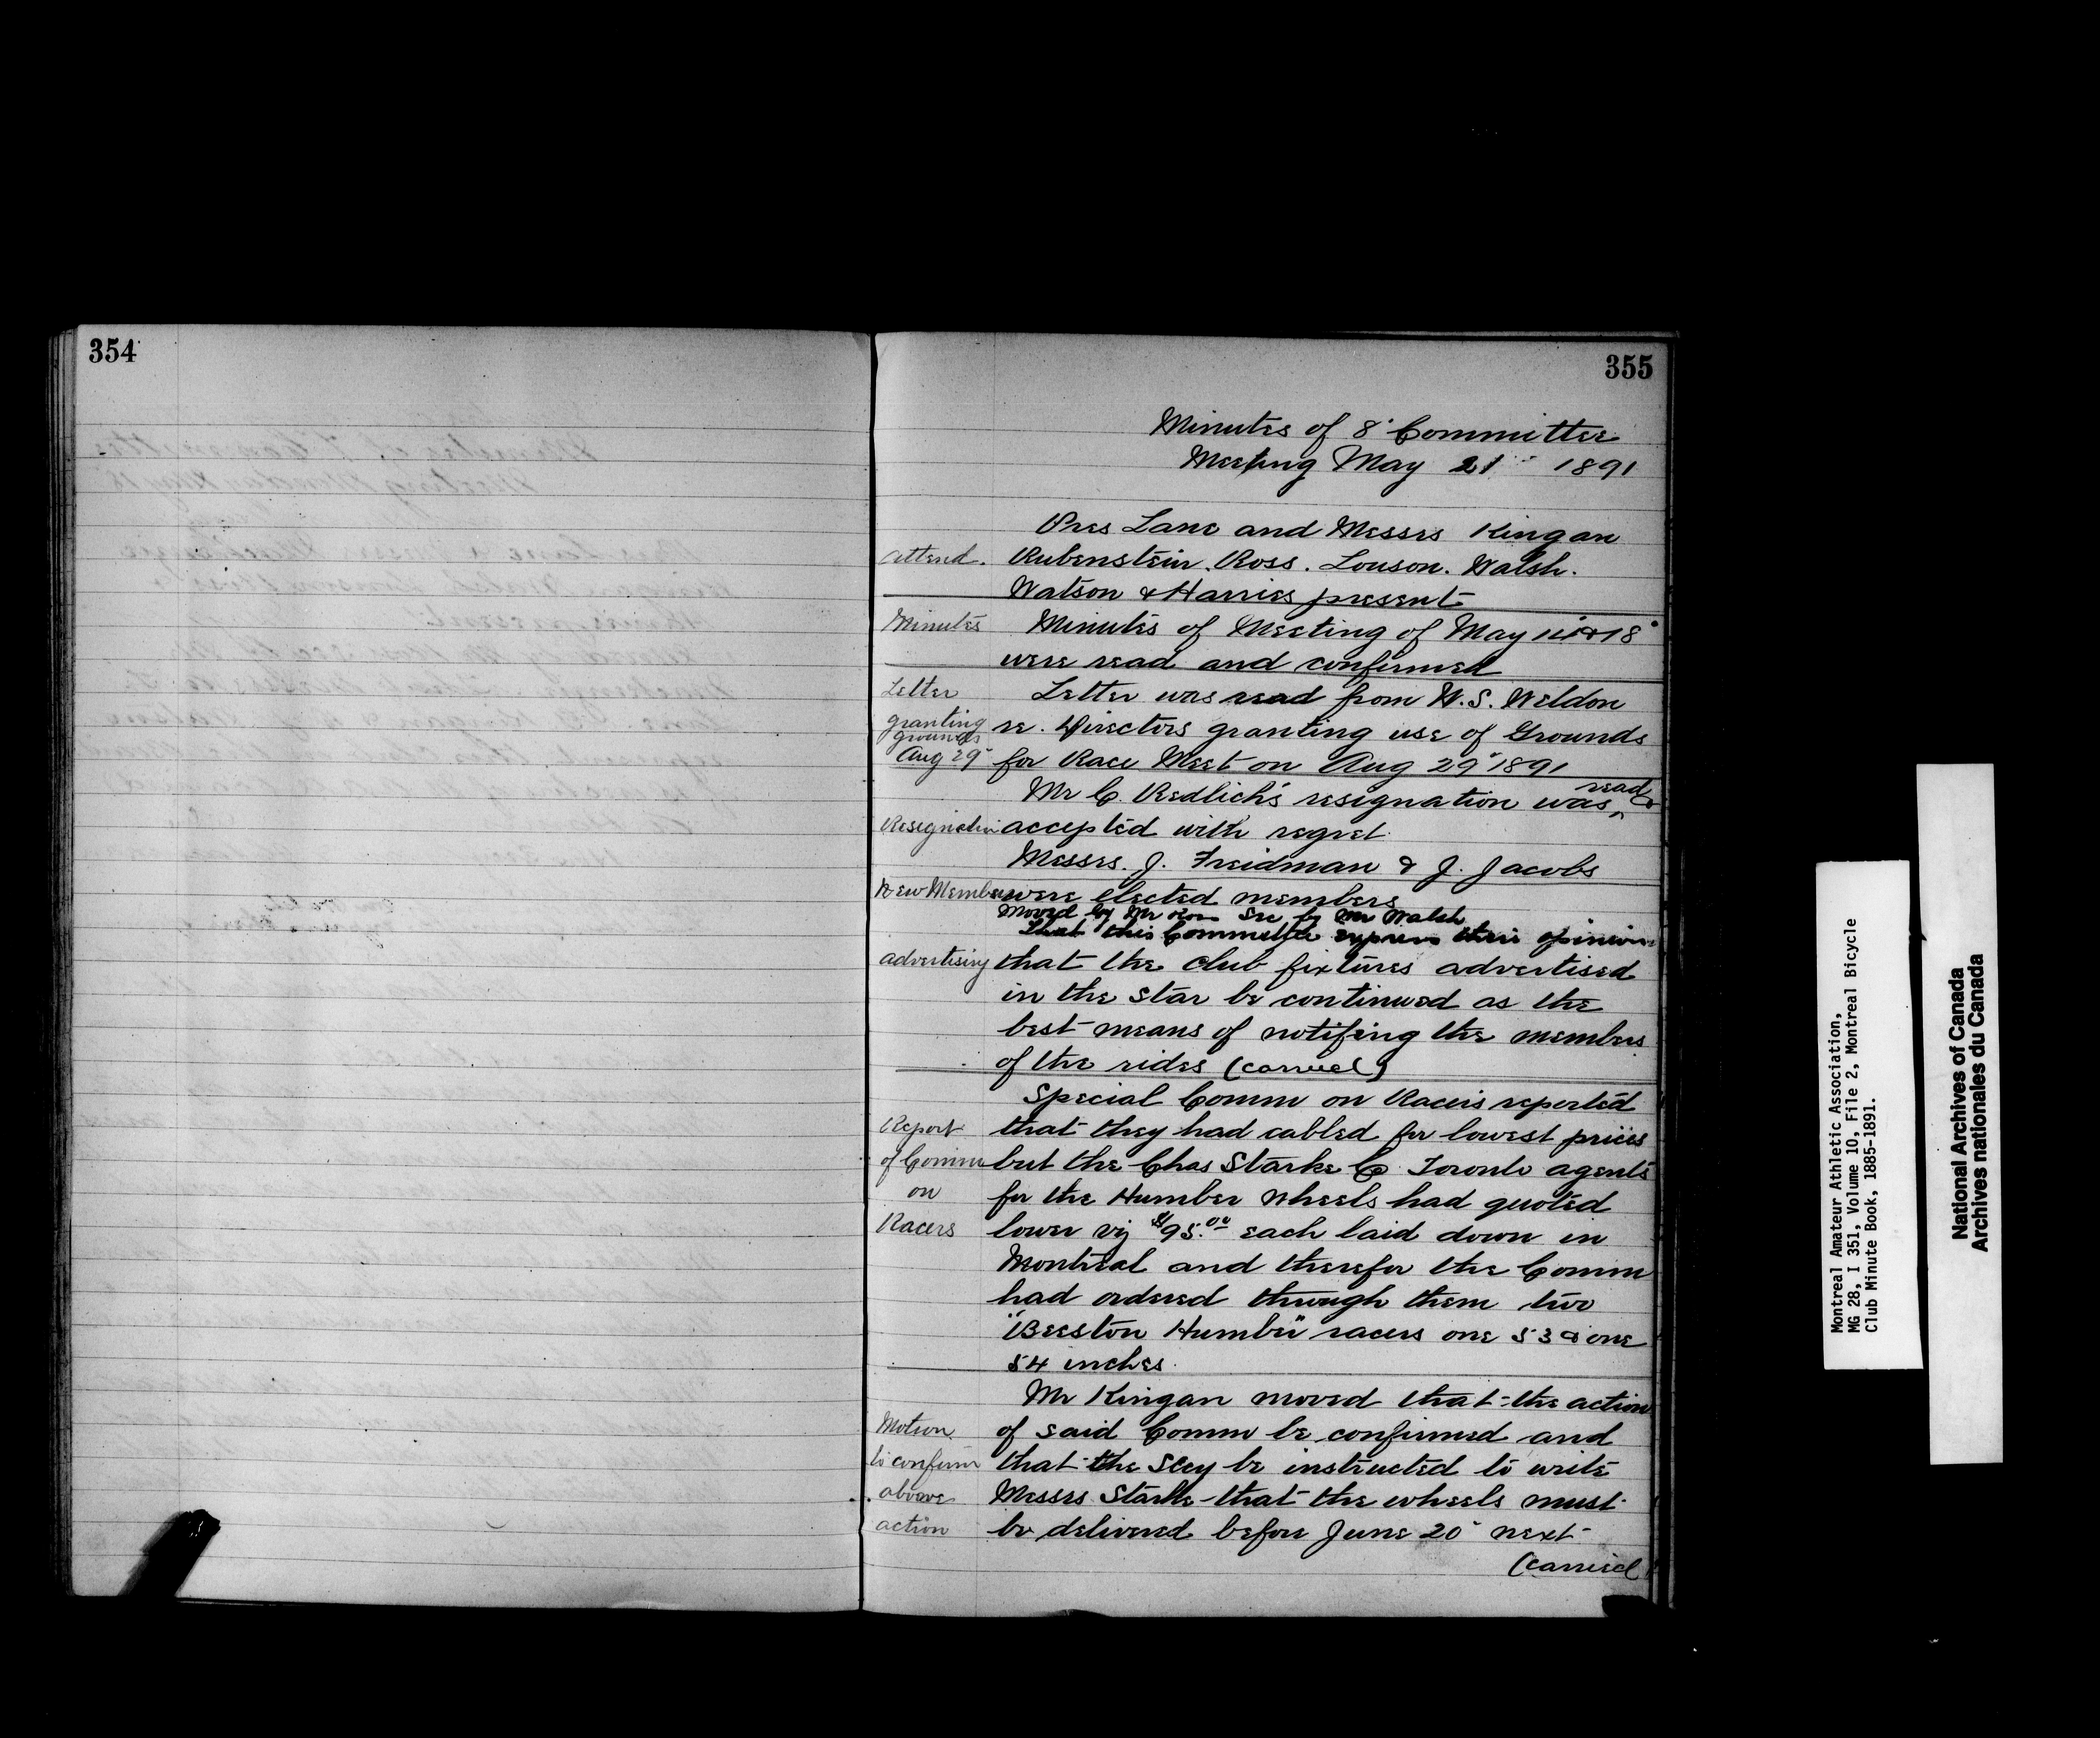 354
355
Minutes of 8" Committee
Meeting May 21" 1891
Pres Lane and Messrs Kingan
attend. Rubenstein. Ross. Louson. Walsh.
Watson & Harries present
Minutes Minutes of Meeting of May & 18"
were read and confirmed
Letter Letter was read from W.S. Weldon
granting grounds re. Directors granting use of Grounds
Aug 29" for Race Meet on Aug 29" 1891
Mr C. Redlich's resignation was read &
Resignation accepted with regret.
Messrs. J. Freidman & J. Jacobs
New Members were elected members
Moved by Mr Ross Sec by Mr Walsh
That this Committee express their opinion
advertising that the Club fixtures advertised
in the Star be continued as the
best means of notifing the members
of the rides (carried)
Special Comm on Racers reported
Report that they had cabled for lowest prices
of Comm but the Chas Starke Co Toronto agents
on for the Humber Wheels had quoted
Racers lower viz $95.00 each laid down in
Montreal and therefor the Comm
had ordered through them two
"Beeston Humber" racers one 53 & one
54 inches.
Mr Kingan moved that the action
Motion of said Comm be confirmed and
to confirm that the Secy be instructed to write
above Messrs Starke that the wheels must
action be delivered before June 20" next
(carried
Montreal Amateur Athletic Association,
MG 28, I 351, Volume 10, File 2, Montreal Bicycle
Club Minute Book, 1885-1891.
National Archives of Canada
Archives nationales du Canada